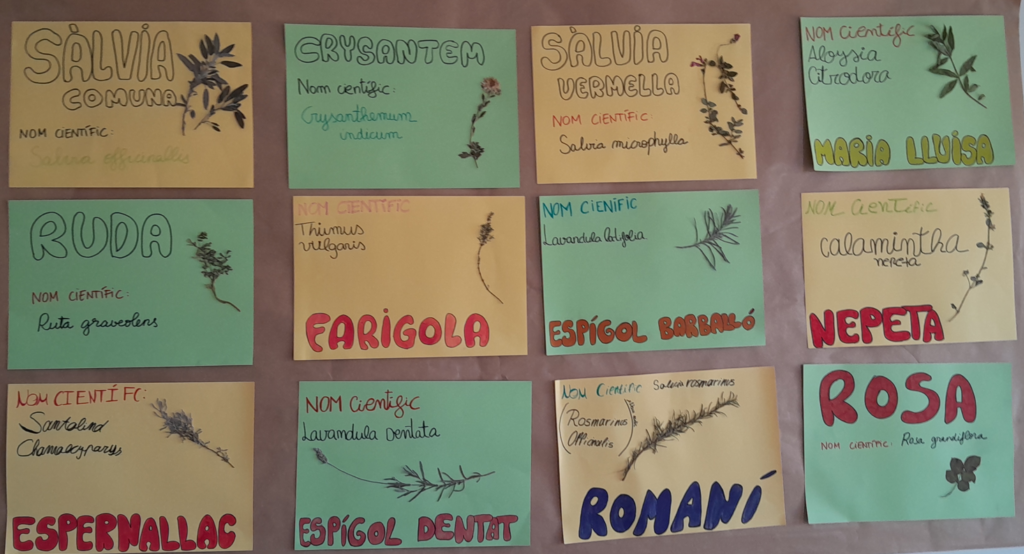 SÀLVIA
COMUNA
NOM CIENTÍFIC:
Salvia offianellis
CRYSANTEM
Nom científic:
Crysanthemum
indicum
SÀLVIA
VERMELLA
NOM CIENTÍFIC:
Salvia microphylla
NOM Científic
Aloysia
Citrodora
MARIA LLUISA
RUDA
NOM CIENTÍFIC:
Ruta graveolens
NOM CIENTÍFIC
Thimus
vulgaris
FARIGOLA
NOM CIENÍFIC
Lavandula latifolia
ESPÍGOL BARBALLÓ
NOM Científic
calamintha
nepeta
NEPETA
NOM CIENTÍFC:
Santolina
Chamaecyparys
ESPERNALLAC
NOM Científic
Lavandula Dentata
ESPÍGOL DENTAT
Nom Científic Salvia rosmarinus
(Rosmarinus
Officinalis)
ROMANÍ
ROSA
NOM CIENTÍFIC: Rosa grandiflora